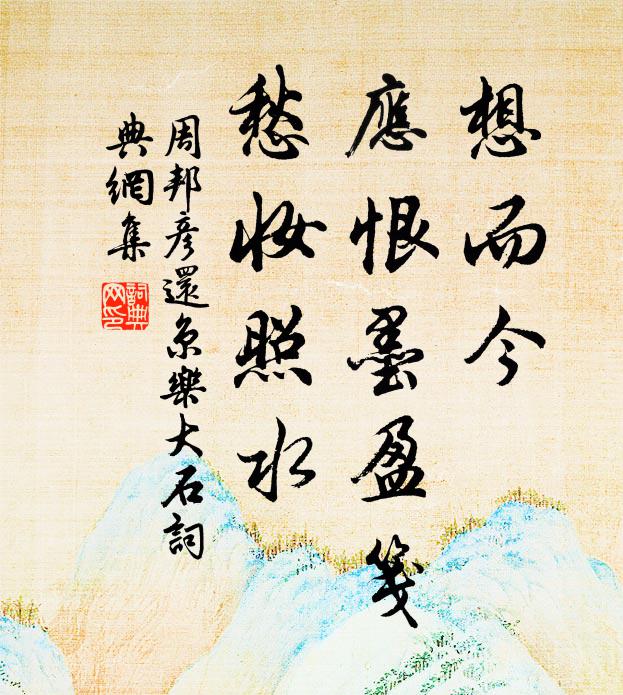 想而今
應恨墨盈箋
愁妝照水
周邦彥還京樂大石詞
典網集
詞典網印